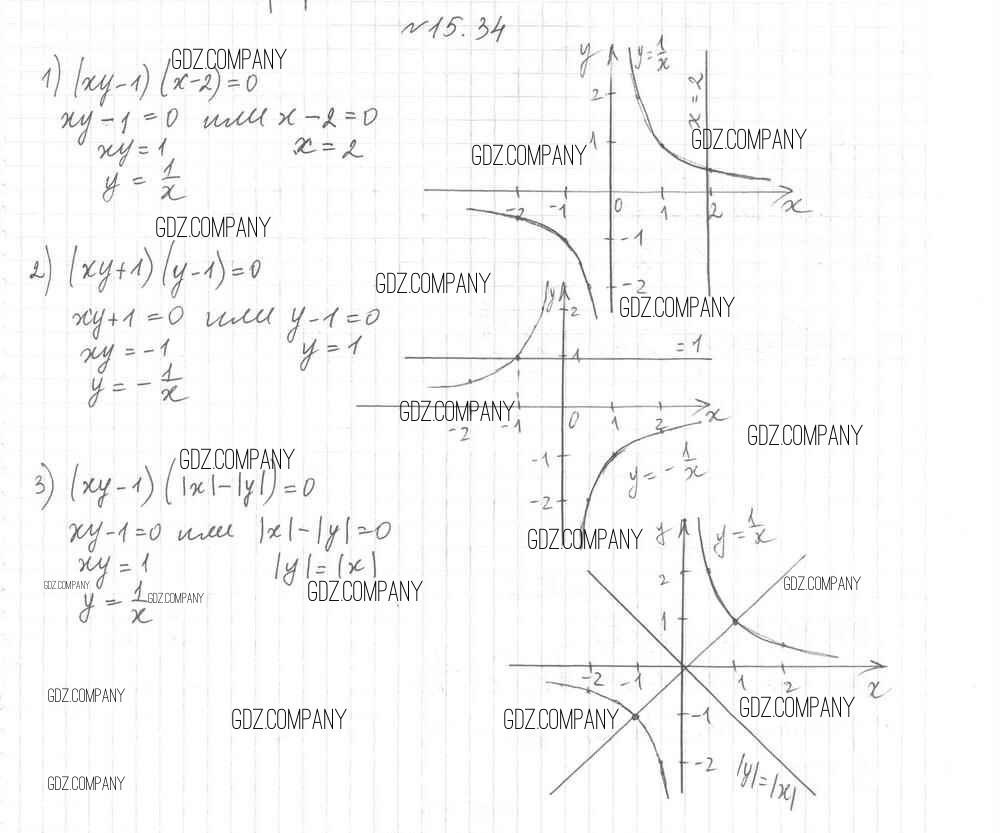 №15.34
GDZ.COMPANY
1) (xy-1)(x-2)=0
xy-1=0 или x-2=0
xy=1 x=2
y = 1/x
GDZ.COMPANY
y
y=1/x
x=2
2
GDZ.COMPANY
1
GDZ.COMPANY
-2 -1 0 1 2 x
-1
-2
GDZ.COMPANY
2) (xy+1)(y-1)=0
xy+1=0 или y-1=0
xy=-1 y=1
y=-1/x
GDZ.COMPANY
y
2
1
=1
GDZ.COMPANY
-2 -1 0 1 2 x
-1
y=-1/x
-2
GDZ.COMPANY
GDZ.COMPANY
GDZ.COMPANY
3) (xy-1)(|x|-|y|)=0
xy-1=0 или |x|-|y|=0
xy=1 |y|=|x|
GDZ.COMPANY
y=1/x
GDZ.COMPANY
GDZ.COMPANY
y
y=1/x
2
GDZ.COMPANY
1
-2 -1 1 2 x
-1
-2
|y|=|x|
GDZ.COMPANY
GDZ.COMPANY
GDZ.COMPANY
GDZ.COMPANY
GDZ.COMPANY